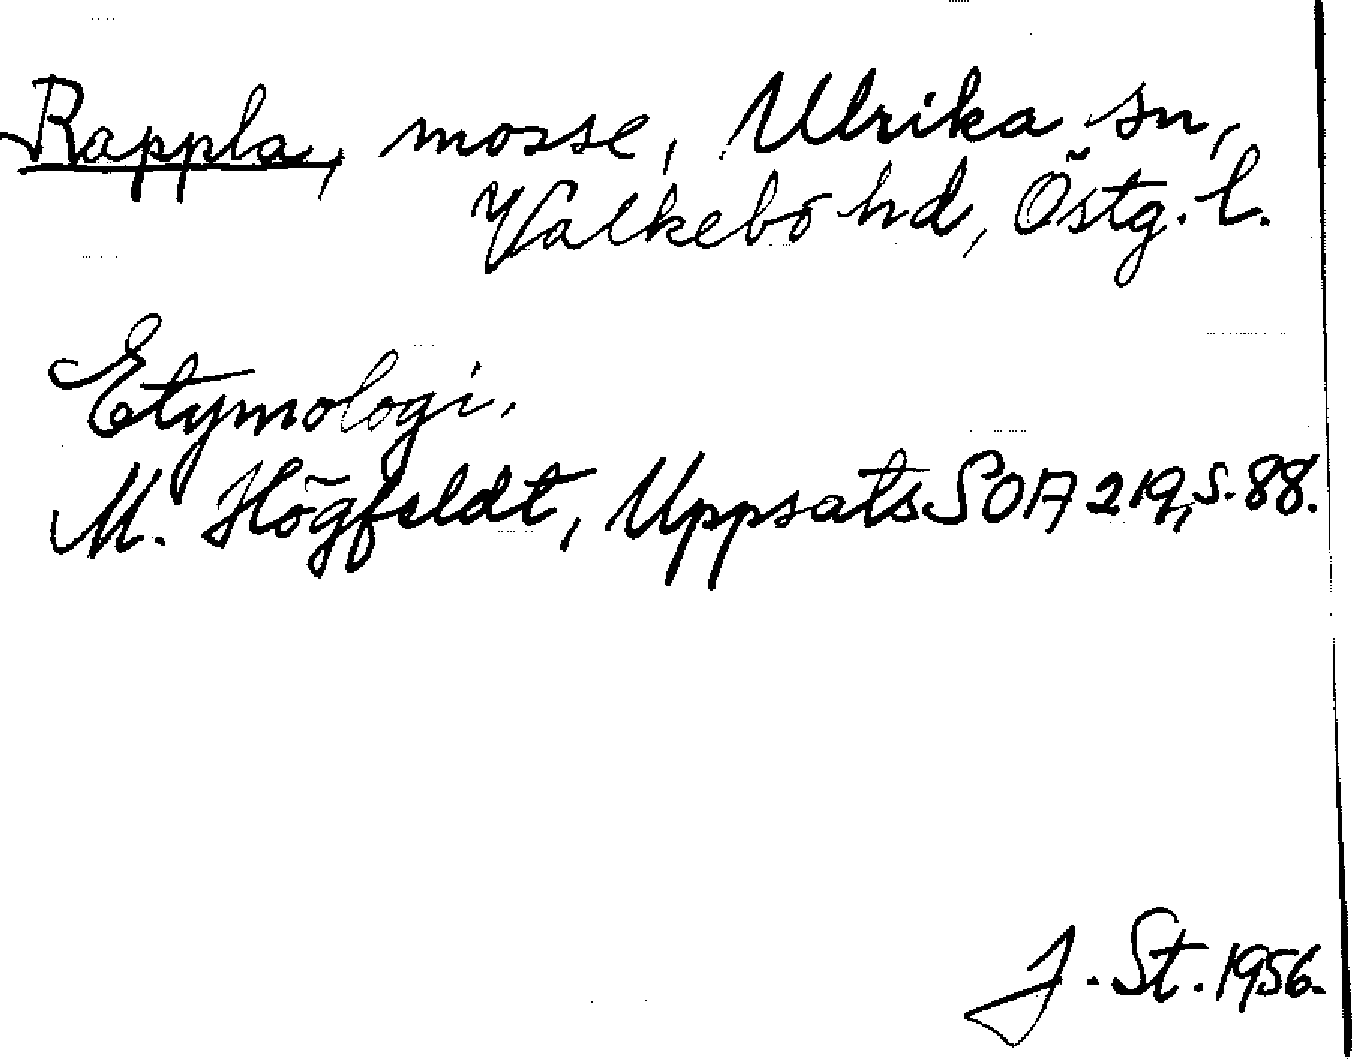 Rappla, mosse, Ulrika sn,
Valkebo hd, Östg. l.
Etymologi.
M. Högfeldt, Uppsats SOA 219, s. 88.
J. St. 1956.